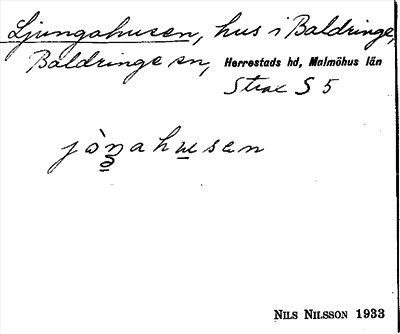 Ljungahusen, hus i Baldringe,
Baldringe sn, Herrestads hd, Malmöhus län
Strax S 5
jòn̥ahu̲sen
NILS NILSSON 1933